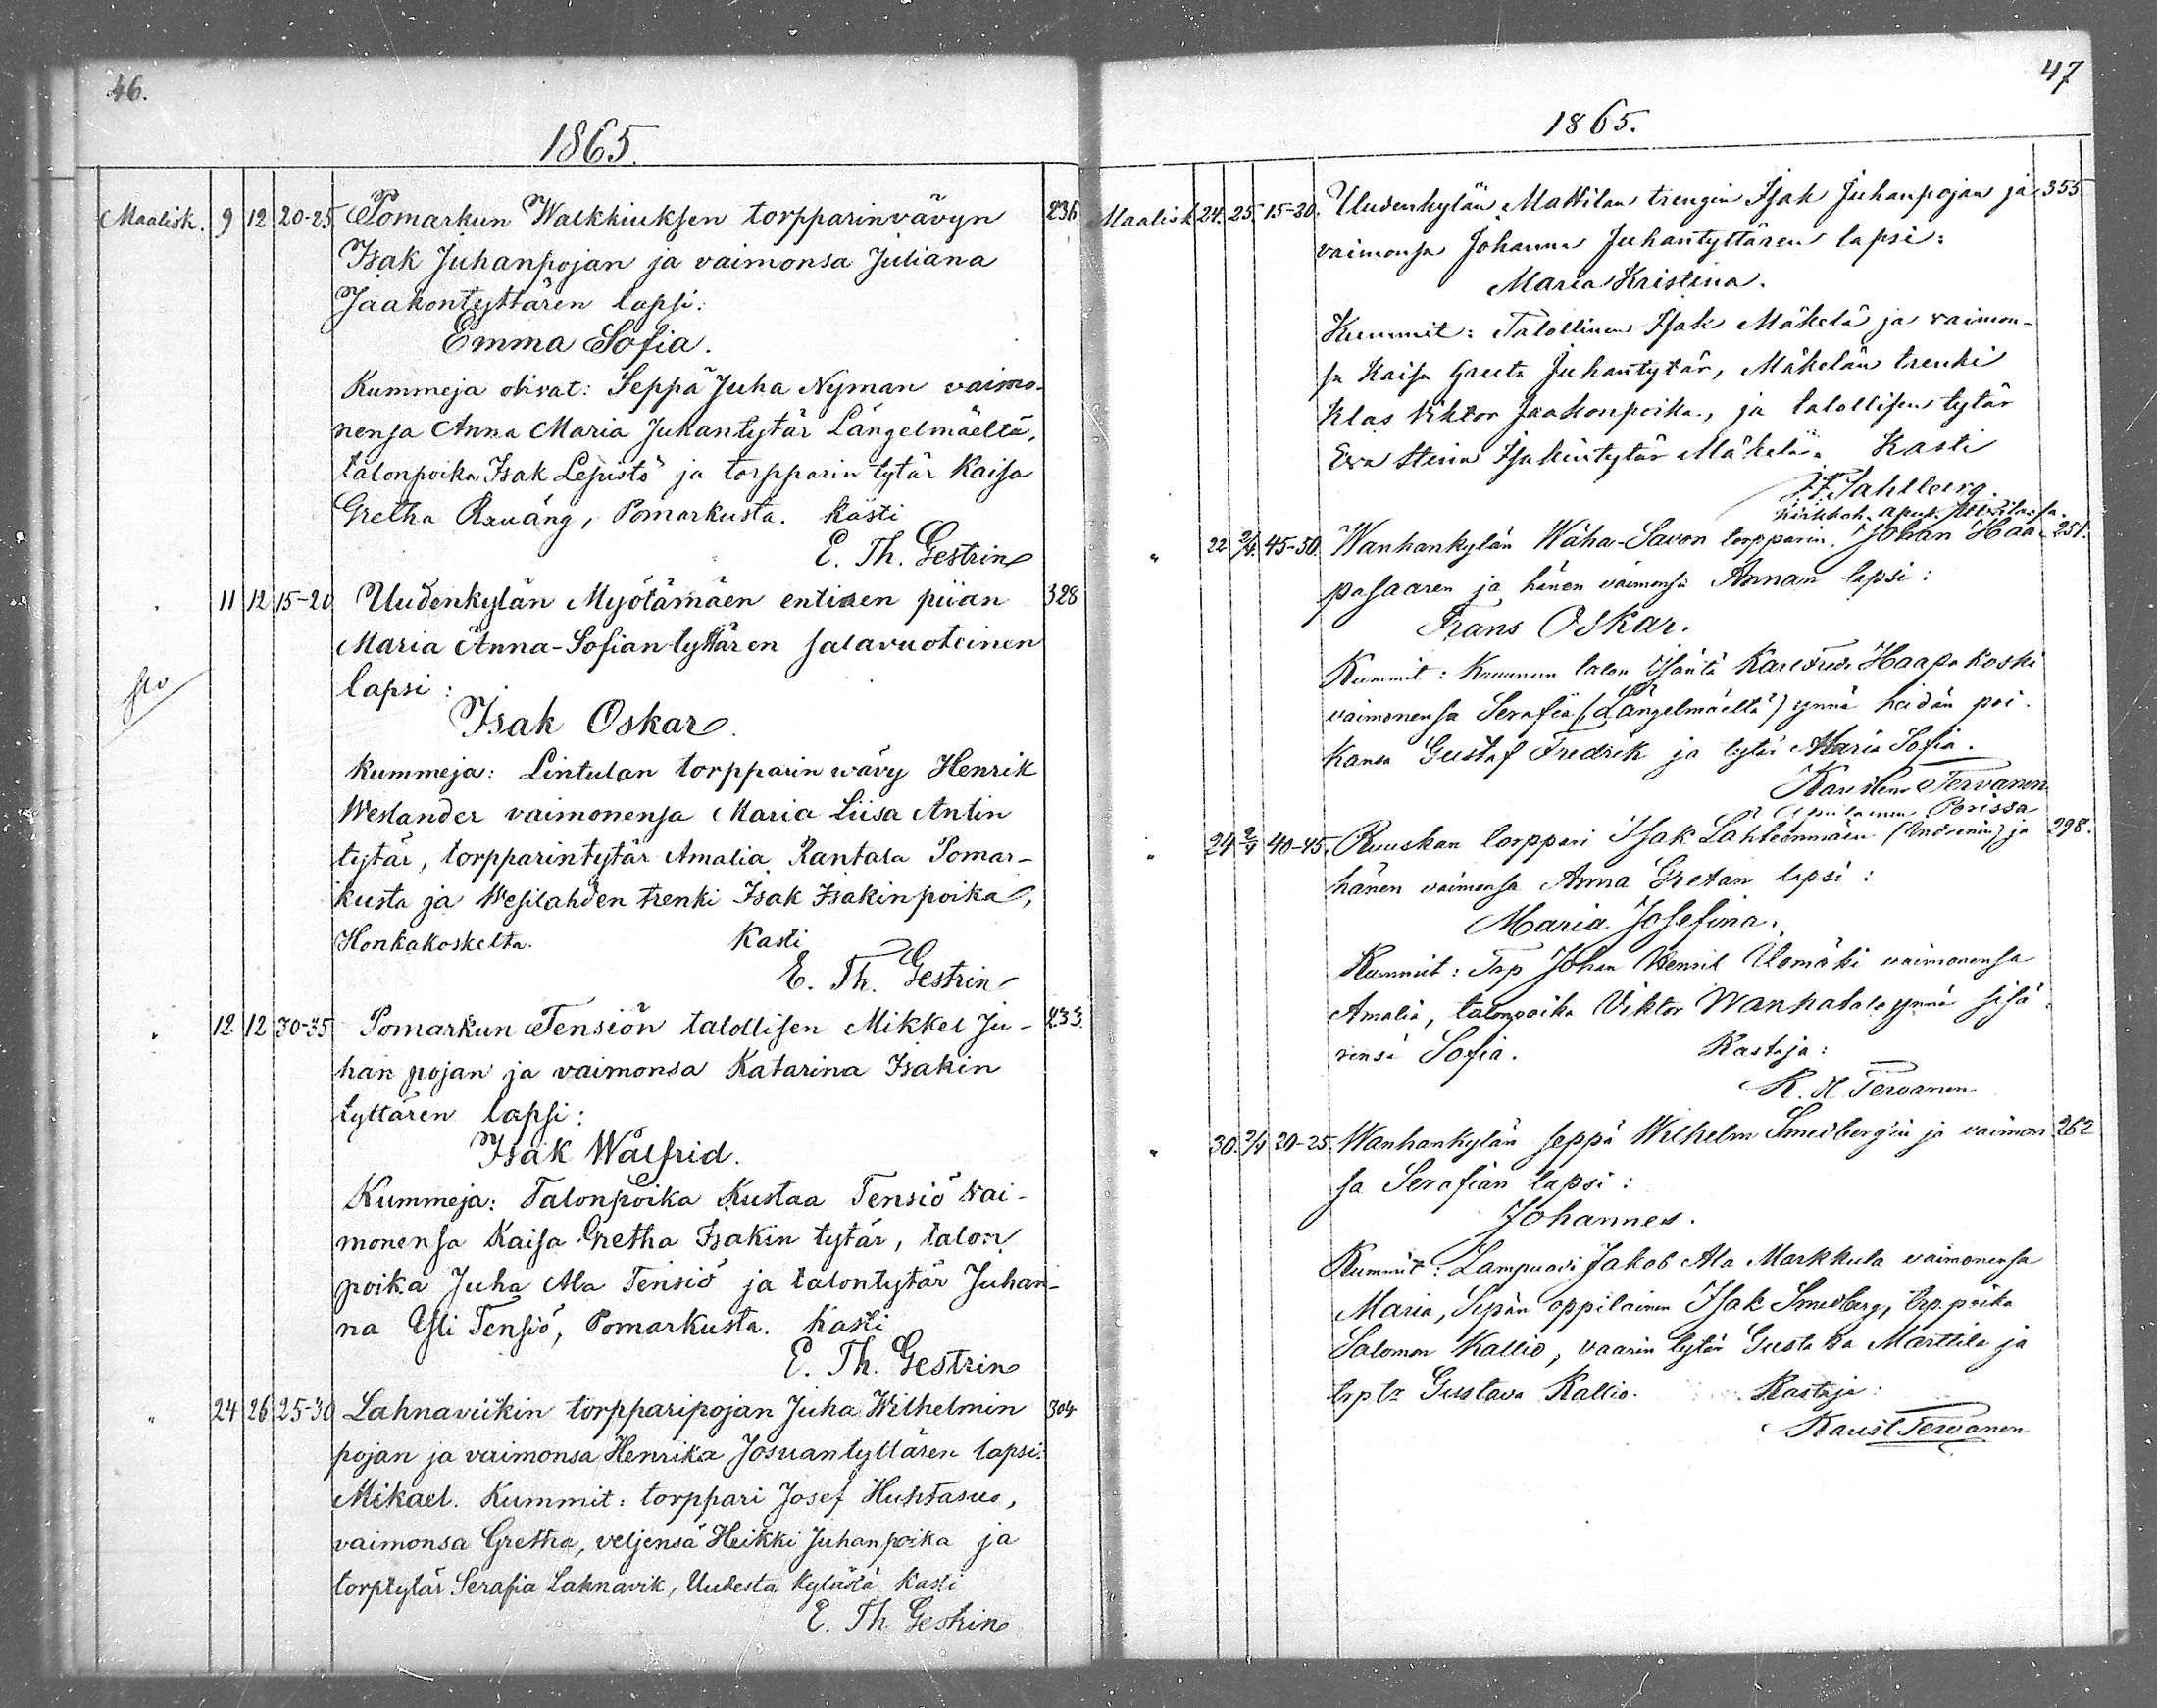 46.
1865.
Maalisk. 9 12 20-25 Pomarkun Walkkiuksen torpparinvävyn 236
Isak Juhanpojan ja vaimonsa Juliana
Jaakontyttären lapsi:
Emma Sofia.
Kummeja olivat: Seppä Juha Nyman vaimo-
nensa Anna Maria Juhantytär Längelmäeltä,
talonpoika Isak Lepistö ja torpparin tytär Kaisa
Gretha, Pomarkusta. kasti
E. Th. Gestrin
11 12 15-20 Uudenkylän Myötämäen entisen piian 328
Maria Anna-Sofian tyttären salavuoteinen
lapsi:
Isak Oskar.
Kummeja: Lintulan torpparin wävy Henrik
Weslander vaimonensa Maria Liisa Antin
tytär, torpparintytär Amalia Rantala Pomar-
kusta ja Wesilahden trenki Isak Isakinpoika,
Honkakoskelta. Kasti
E. Th. Gestrin
" 12 12 30-35 Pomarkun Tensiön talollisen Mikkel Ju- 233.
han pojan ja vaimonsa Katarina Isakin
tyttären lapsi:
Isak Walfrid.
Kummeja: Talonpoika Kustaa Tensiö vai-
monensa Kaisa Gretha Isakin tytär, talon
poika Juha Ala Tensiö ja talontytär Juhan-
na Yli Tensiö, Pomarkusta. kasti
E. Th. Gestrin
" 24 26 25-30 Lahnaviikin torpparipojan Juha Wilhelmin 304
pojan ja vaimonsa Henrika Josuantyttären lapsi:
Mikael. Kummit: torppari Josef Huhtasuo,
vaimonsa Gretha, veljensä Heikki Juhanpoika ja
torptytär Serafia Lahnavik, Uudesta kylästä kasti
E. Th. Gestrin
47
1865.
Maalisk 24. 25. 15-20. Uudenkylän Mattilan trengin Isak Juhanpojan ja 355
vaimonsa Johanna Juhantyttären lapsi:
Maria Kristina.
Kummit: Talollinen Isak Mäkelä ja vaimon-
sa Kaisa Greeta Juhantytär, Mäkelän trenki
Klas Viktor Jaakonpoika, ja talollisen tytär
Eva Stiina Isakintytär Mäkelä. Kasti
Kirkkoh. apul.
" 22 2/4. 45-50. Wanhankylän Wäha-Savon torpparin Johan Haa- 251.
pasaaren ja hänen vaimonsa Annan lapsi:
Frans Oskar.
Kummit: Kruunun talon isäntä Karl Fredr. Haapakoski
vaimonensa Serafia (Längelmäeltä) ynnä heidän poi-
kansa Gustaf Fredrik ja tytär Maria Sofia.
Tervanen
Porissa
" 24 2/4 40-45. Ruuskan torppari Isak Lahteenmäen ja 298.
hänen vaimonsa Anna Gretan lapsi:
Maria Josefina.
Kummit: Trp Johan Henrik Ulomäki vaimonensa
Amalia, talonpoika Viktor Wanhatalo ynnä sisa-
rensa Sofia. Kastaja:
K. H. Tervanen
" 30. 2/4 20-25. Wanhankylän seppä Wilhelm Smedbergin ja vaimon- 262
sa Serafian lapsi:
Johannes.
Kummit: Lampuodi Jakob Ala Markkula vaimonensa
Maria, Sepän oppilainen Isak Smedberg, trp. poika
Salomon Kallio, vaarin tytär Gustava Marttila ja
trp tr Gustava Kallio. Kastaja:
Tervanen